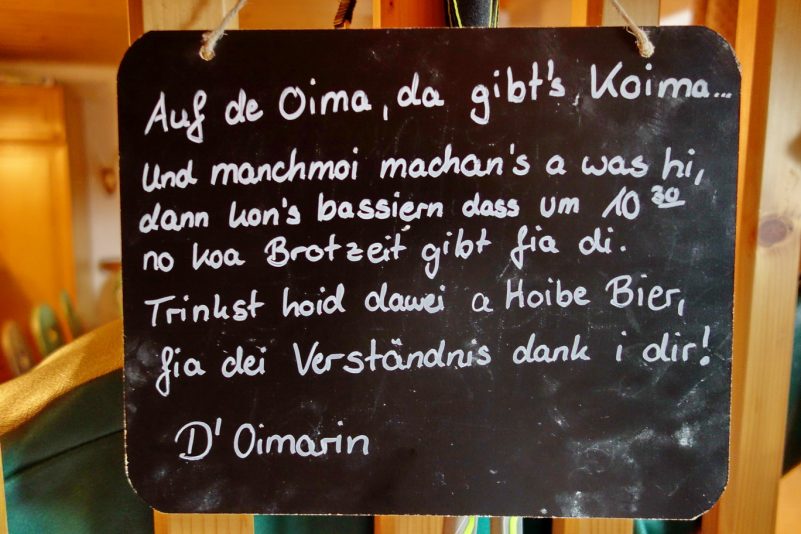 Auf de Oima, da gibt's, Koima...
Und manchmoi machan's a was hi,
dann kon's bassiern dass um 10 30
no koa Brotzeit gibt fia di.
Trinkst hoid dawei a Hoibe Bier,
fia dei Verständnis dank i dir!
D' Oimarin